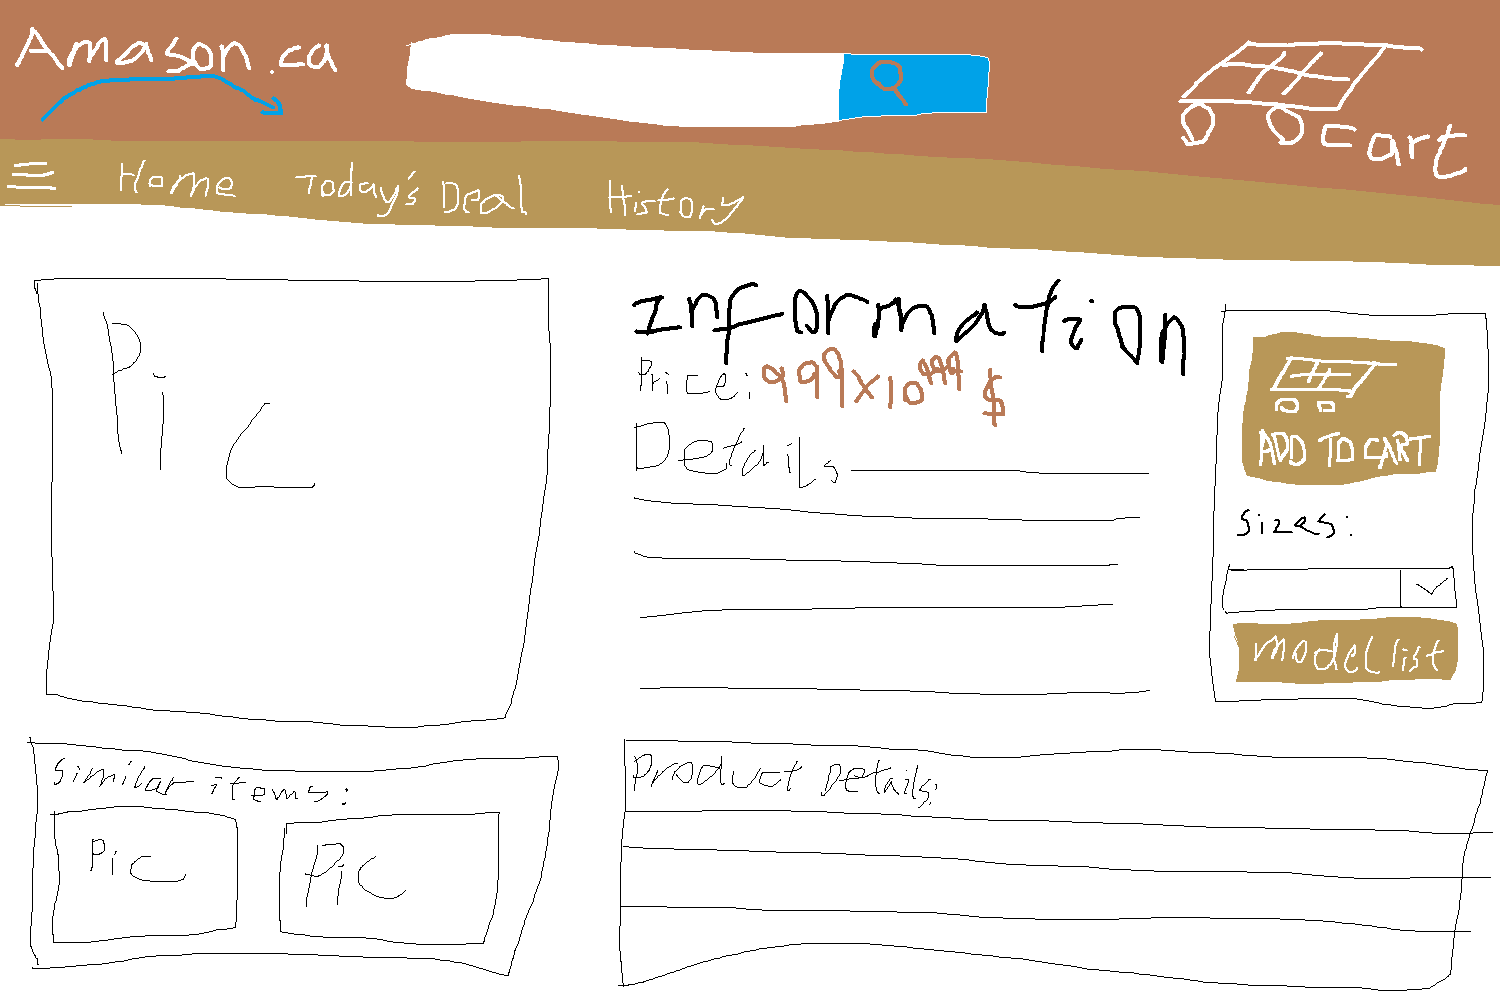 Amason.ca
cart
Home Today's Deal History
Pic
Information
Price: 999x10⁹⁹⁹ $
Details
ADD TO CART
Sizes:
model list
Similar items:
Pic
Pic
Product Details: